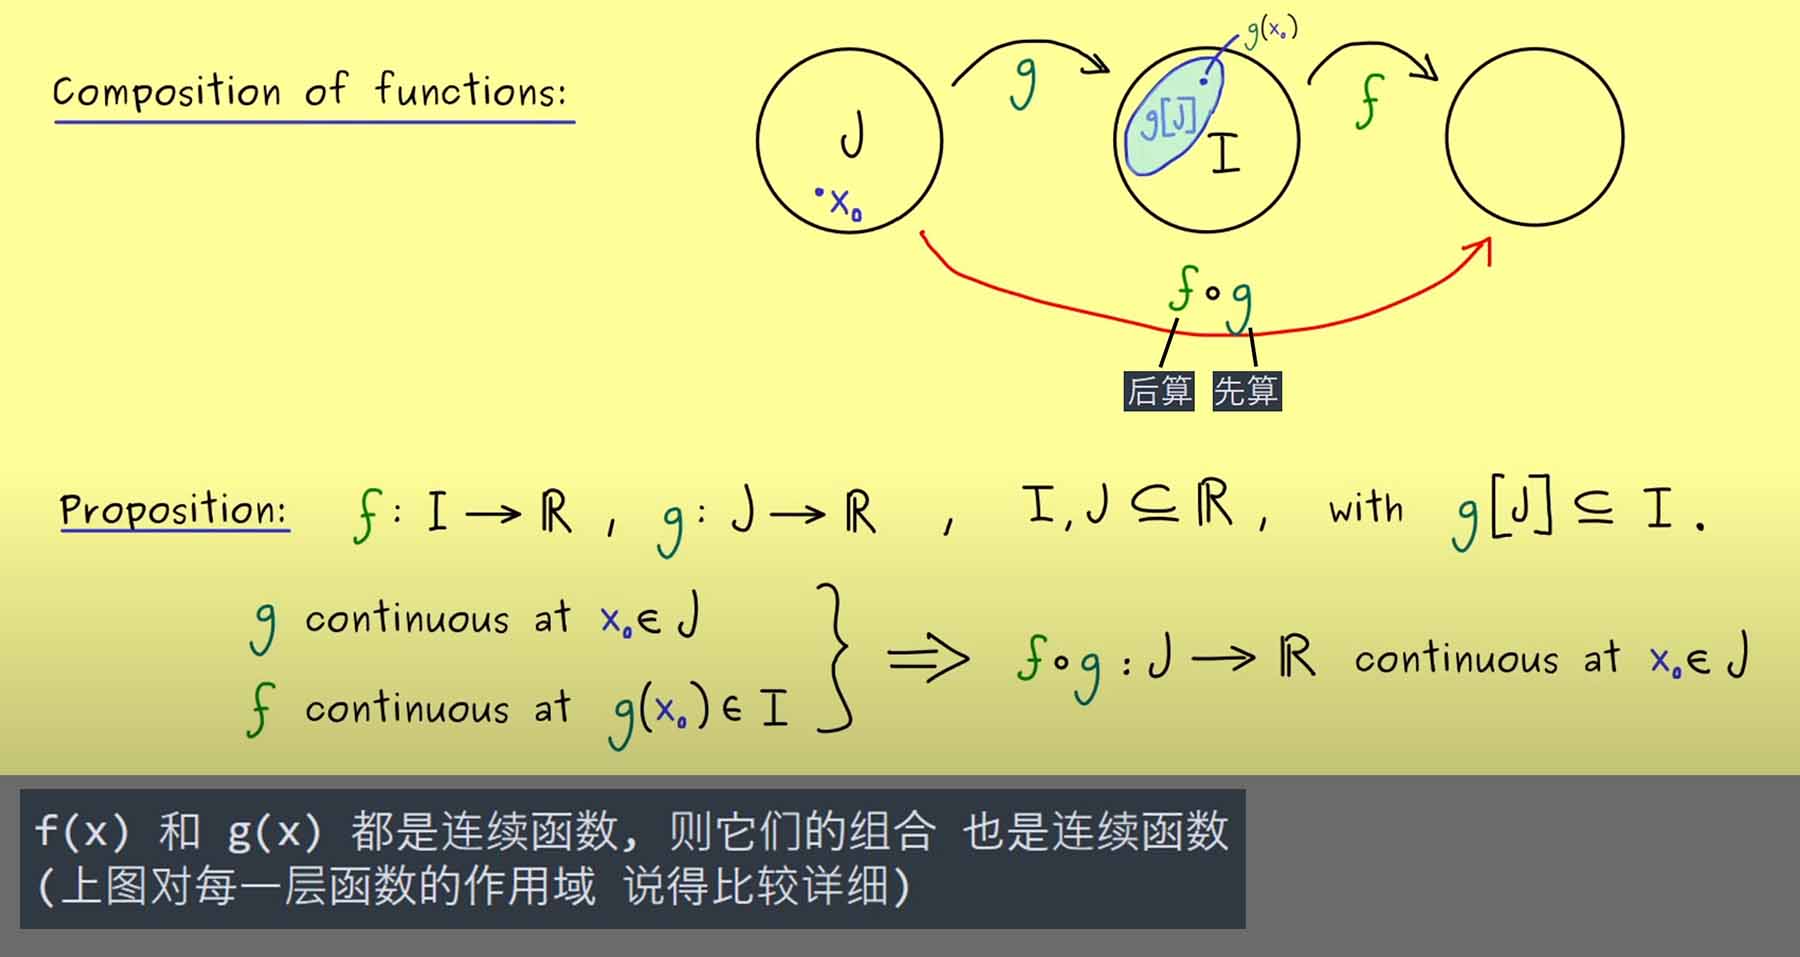 Composition of functions:
J
x₀
g
g(x₀)
g[J]
I
f
f∘g
后算 先算
Proposition: f: I → ℝ , g: J → ℝ , I, J ⊆ ℝ, with g[J] ⊆ I.
g continuous at x₀ ∈ J
f continuous at g(x₀) ∈ I
} ⟹ f∘g : J → ℝ continuous at x₀ ∈ J
f(x) 和 g(x) 都是连续函数, 则它们的组合 也是连续函数
(上图对每一层函数的作用域 说得比较详细)